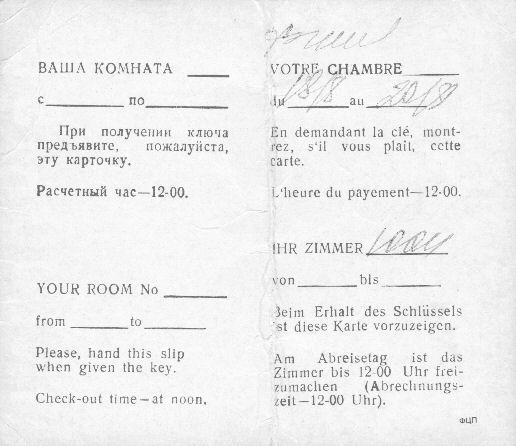 ВАША КОМНАТА
с по
При получении ключа
предъявите, пожалуйста,
эту карточку.
Расчетный час—12-00.
YOUR ROOM No
from to
Please, hand this slip
when given the key.
Check-out time—at noon.
VOTRE CHAMBRE
du 18/8 au 20/8
En demandant la clé, mont-
rez, s'il vous plait, cette
carte.
L'heure du payement—12-00.
IHR ZIMMER 1004
von bis
Beim Erhalt des Schlüssels
ist diese Karte vorzuzeigen.
Am Abreisetag ist das
Zimmer bis 12-00 Uhr frei-
zumachen (Abrechnungs-
zeit—12-00 Uhr).
ФЦП